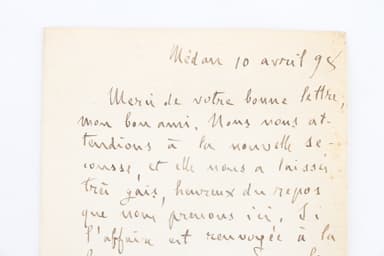 Médan 10 avril 98
Merci de votre bonne lettre,
mon bon ami. Nous nous at-
tendions à la nouvelle se-
cousse, et elle nous a laissés
très gais, heureux du repos
que nous prenons ici. Si
l'affaire est renvoyée à la